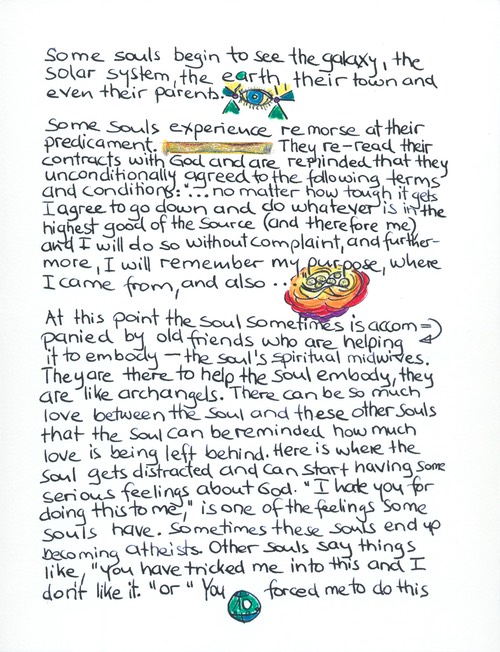 Some souls begin to see the galaxy, the
solar system, the earth, their town and
even their parents.
Some souls experience remorse at their
predicament. They re-read their
contracts with God and are reminded that they
unconditionally agreed to the following terms
and conditions: "... no matter how tough it gets
I agree to go down and do whatever is in the
highest good of the Source (and therefore me)
and I will do so without complaint, and further-
more, I will remember my purpose, where
I came from, and also ...
At this point the soul sometimes is accom=
panied by old friends who are helping
it to embody — the soul's spiritual midwives.
They are there to help the soul embody, they
are like archangels. There can be so much
love between the soul and these other souls
that the soul can be reminded how much
love is being left behind. Here is where the
soul gets distracted and can start having some
serious feelings about God. "I hate you for
doing this to me," is one of the feelings some
souls have. Sometimes these souls end up
becoming atheists. Other souls say things
like, "You have tricked me into this and I
don't like it." or "You forced me to do this
10